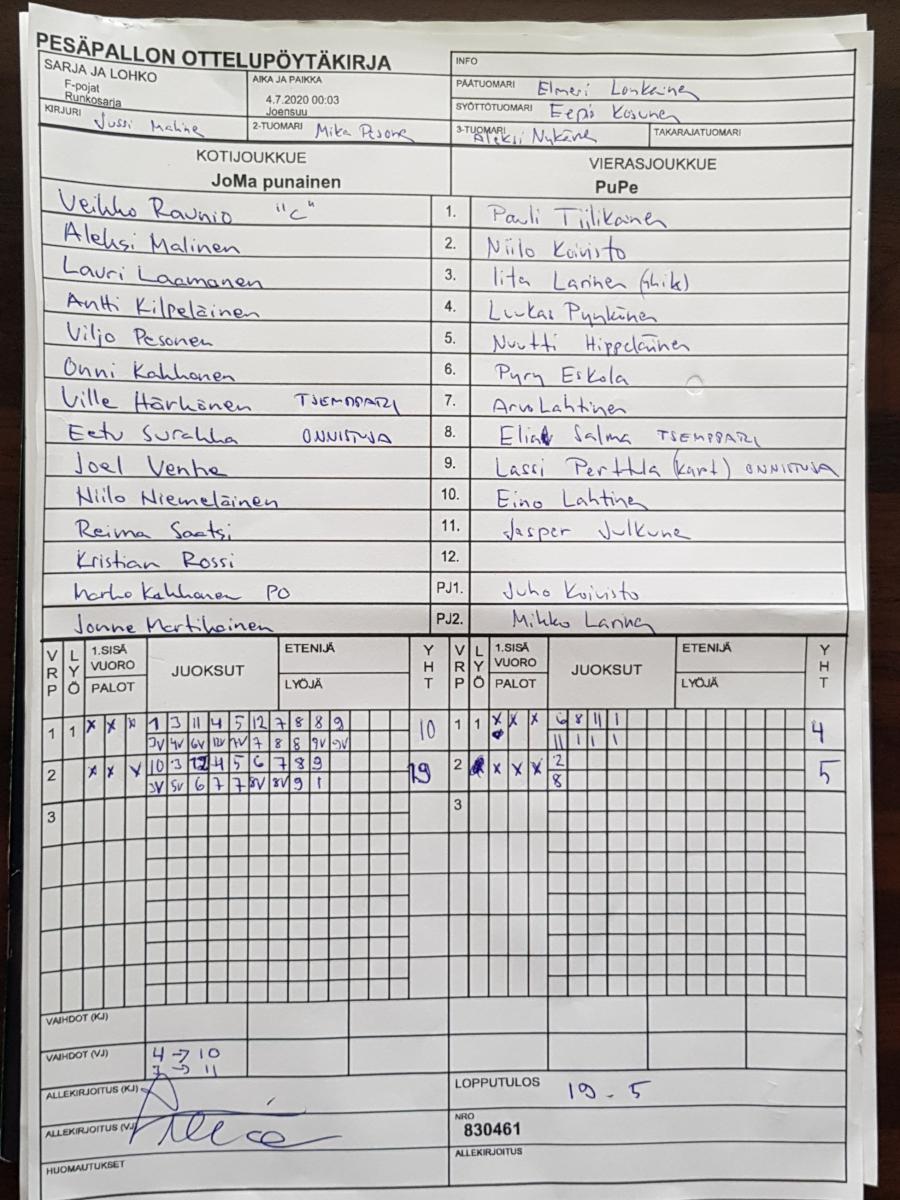 PESÄPALLON OTTELUPÖYTÄKIRJA
SARJA JA LOHKO
F-pojat
Runkosarja
AIKA JA PAIKKA
4.7.2020 00:03
Joensuu
INFO
PÄÄTUOMARI Elmeri Lonkainen
SYÖTTÖTUOMARI Eepis Kosunen
KIRJURI Jussi Maline
2-TUOMARI Mika Pesone
3-TUOMARI Aleksi Nykäne
TAKARAJATUOMARI
KOTIJOUKKUE
JoMa punainen
VIERASJOUKKUE
PuPe
Veikko Raunio "C" 1. Pauli Tiilikainen
Aleksi Malinen 2. Niilo Koivisto
Lauri Laamanen 3. Iita Larinen
Antti Kilpeläinen 4. Luukas Pynnönen
Viljo Pesonen 5. Nuutti Hippeläinen
Onni Kahhonen 6. Pyry Eskola
Ville Härkönen TSEMPPARI 7. Arvo Lahtinen
Eetu Surakka ONNISTUJA 8. Salma TSEMPPARI
Joel Venhe 9. Lassi Perttula (kapt) ONNISTUJA
Niilo Niemeläinen 10. Eino Lahtine
Reima Saatsi 11. Jasper Julkune
Kristian Rossi 12.
Marko Kahhonen PO PJ1. Juho Koivisto
Jonne Martikainen PJ2. Mikko Larinen
VRP LYÖ 1.SISÄ VUORO JUOKSUT ETENIJÄ YHT VRP LYÖ 1.SISÄ VUORO JUOKSUT ETENIJÄ YHT
PALOT LYÖJÄ PALOT LYÖJÄ
1 1 x x x 1 3 11 4 5 12 7 8 8 9 10 1 1 x x x 6 8 11 1 4
3V 4V 6V 12V 7V 7 8 8 9V 9V 11 1 1 1
2 x x x 10 3 12 4 5 6 7 8 9 19 2 x x x 2 5
3V 5V 6 7 7 8V 8V 9 1 8
3 3
VAIHDOT (KJ)
VAIHDOT (VJ) 4 → 10
7 → 11
ALLEKIRJOITUS (KJ)
LOPPUTULOS 19 - 5
ALLEKIRJOITUS (VJ)
NRO
830461
HUOMAUTUKSET
ALLEKIRJOITUS